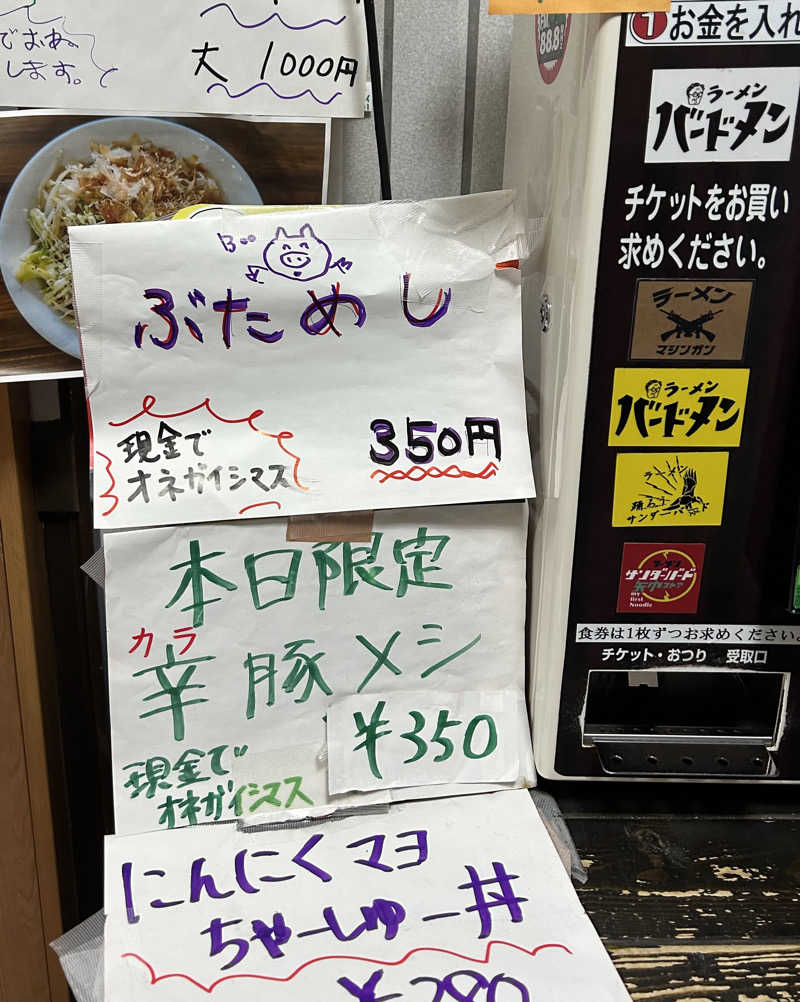 します。
大 1000円
Boo
ぶためし
現金で
オネガイシマス
350円
本日限定
カラ
辛豚メシ
¥350
現金で
オネガイシマス
にんにくマヨ
ちゃーしゅー丼
88.8
①お金を入れ
ラーメン
バードメン
チケットをお買い
求めください。
ラーメン
マシンガン
ラーメン
バードメン
ラーメン
サンダーバード
ラーメン
サンダーバード
my
first
Noodle
食券は1枚ずつお求めください。
チケット・おつり 受取口